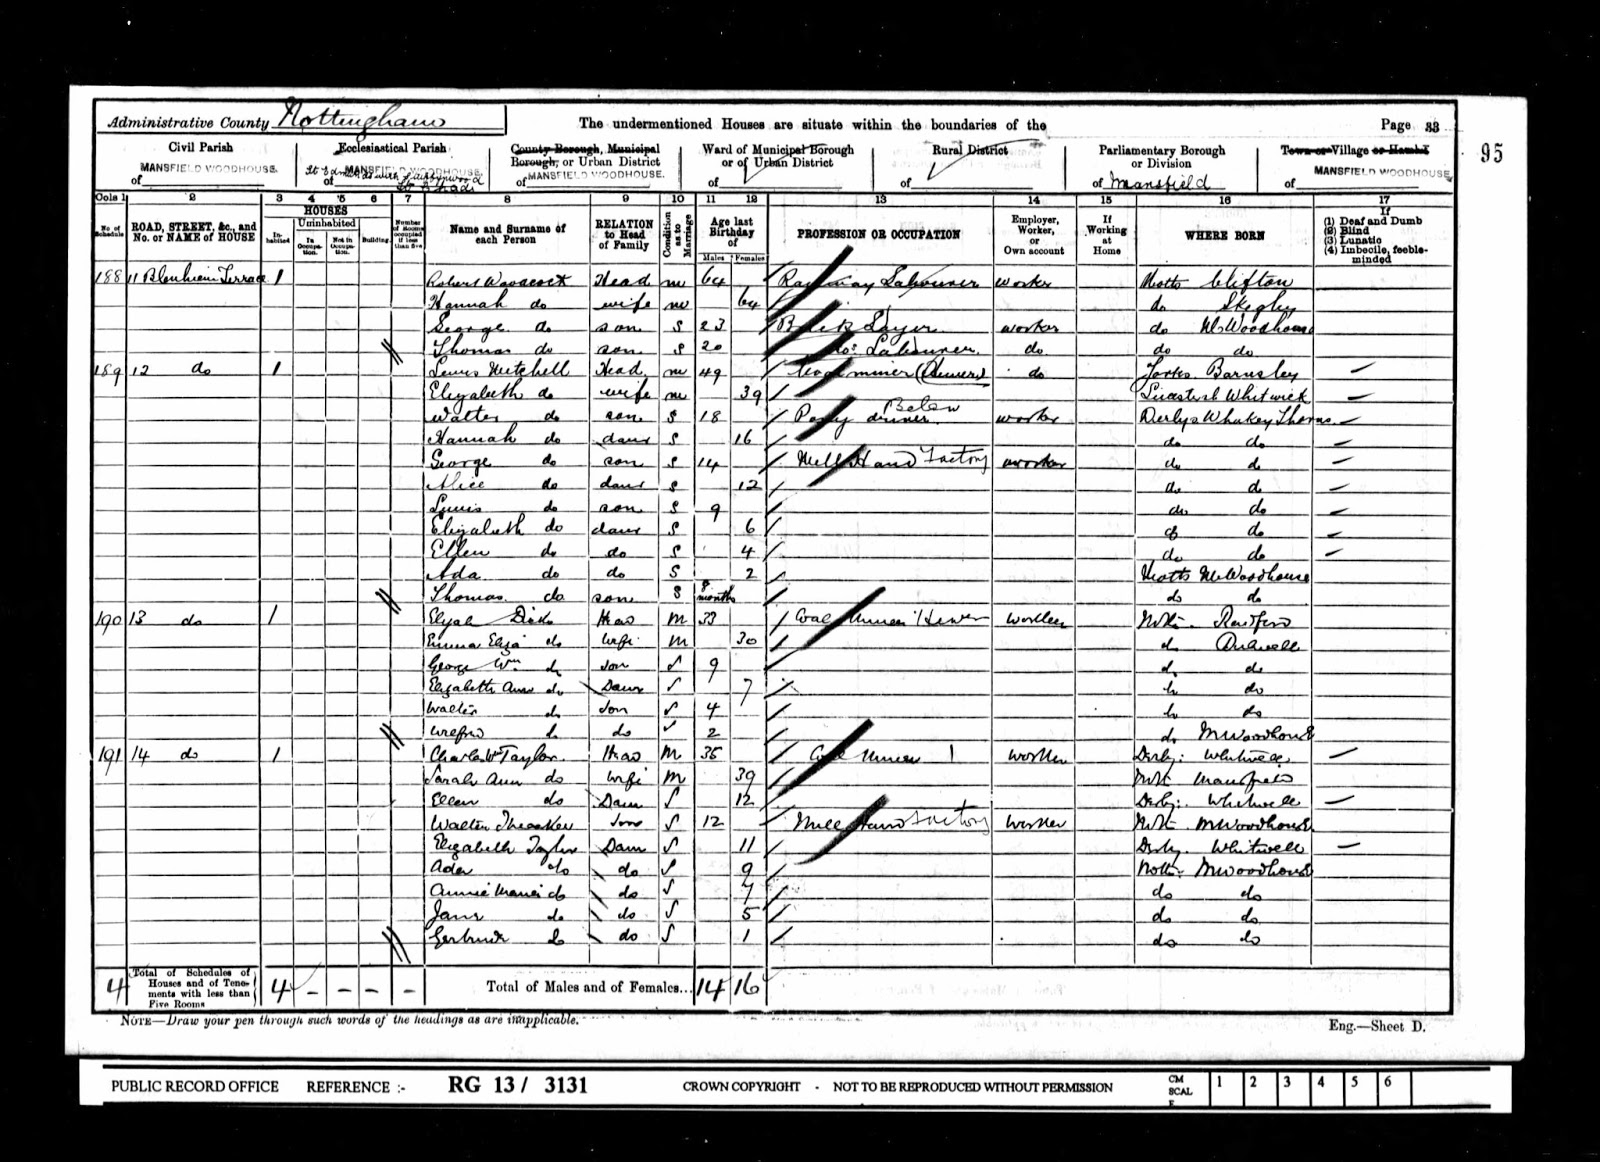 Administrative County Nottingham
The undermentioned Houses are situate within the boundaries of the
Page 33
95
Civil Parish
of MANSFIELD WOODHOUSE.
Ecclesiastical Parish
of MANSFIELD WOODHOUSE
County Borough, Municipal Borough, or Urban District
of MANSFIELD WOODHOUSE.
Ward of Municipal Borough or of Urban District
of
Rural District
of
Parliamentary Borough or Division
of Mansfield
Town or Village or Hamlet
of MANSFIELD WOODHOUSE
Cols 1 2 3 4 5 6 7 8 9 10 11 12 13 14 15 16 17
No. of Schedule
ROAD, STREET, &c., and No. or NAME of HOUSE
HOUSES
Inhabited
Uninhabited
In Occupation.
Not in Occupation.
Building.
Number of Rooms occupied if less than five
Name and Surname of each Person
RELATION to Head of Family
Condition as to Marriage
Age last Birthday of
Males Females
PROFESSION OR OCCUPATION
Employer, Worker, or Own account
If Working at Home
WHERE BORN
If
(1) Deaf and Dumb
(2) Blind
(3) Lunatic
(4) Imbecile, feeble-minded
188 11 Blenheim Terrace 1 Robert Head m 64 Railway Labourer worker Notts Clifton
Hannah do wife m 64 do Skegby
George do son S 23 Brick Layer worker do M Woodhouse
Thomas do son S 20 do Labourer do do do
189 12 do 1 Lewis Mitchell Head m 49 Coal miner (Hewer) do Yorks Barnsley
Elizabeth do wife m 39 Whitwick
Walter do son S 18 Pony driver Below worker Derbys Whaley Thorns
Hannah do daur S 16 do do
George do son S 14 Mill Hand Factory worker do do
Alice do daur S 12 do do
Lewis do son S 9 do do
Elizabeth do daur S 6 do do
Ellen do do S 4 do do
Ada do do S 2 Notts M Woodhouse
Thomas do son S 8 months do do
190 13 do 1 Elijah Head M 33 Coal Miner Hewer worker Notts Radford
Emma Eliza do Wife M 30 do Bulwell
George Wm do Son S 9 do do
Elizabeth Ann do Daur S 7 do do
Walter do Son S 4 do do
Wilfred do do S 2 do M Woodhouse
191 14 do 1 Charles Wm Taylor Head M 35 Coal Miner worker Derby: Whitwell
Sarah Ann do Wife M 39 Nott Mansfield
Ellen do Daur S 12 Derby: Whitwell
Walter Theaker Son S 12 Mill Hand Factory worker Nott M Woodhouse
Elizabeth Taylor Daur S 11 Derby. Whitwell
Ada do do S 9 Nott: M Woodhouse
Annie do do S 7 do do
Jane do do S 5 do do
Gertrude do do S 1 do do
4 Total of Schedules of Houses and of Tenements with less than Five Rooms 4 – – – – Total of Males and of Females... 14 16
NOTE—Draw your pen through such words of the headings as are inapplicable.
Eng.—Sheet D.
PUBLIC RECORD OFFICE REFERENCE :- RG 13 / 3131 CROWN COPYRIGHT - NOT TO BE REPRODUCED WITHOUT PERMISSION CM SCALE 1 2 3 4 5 6